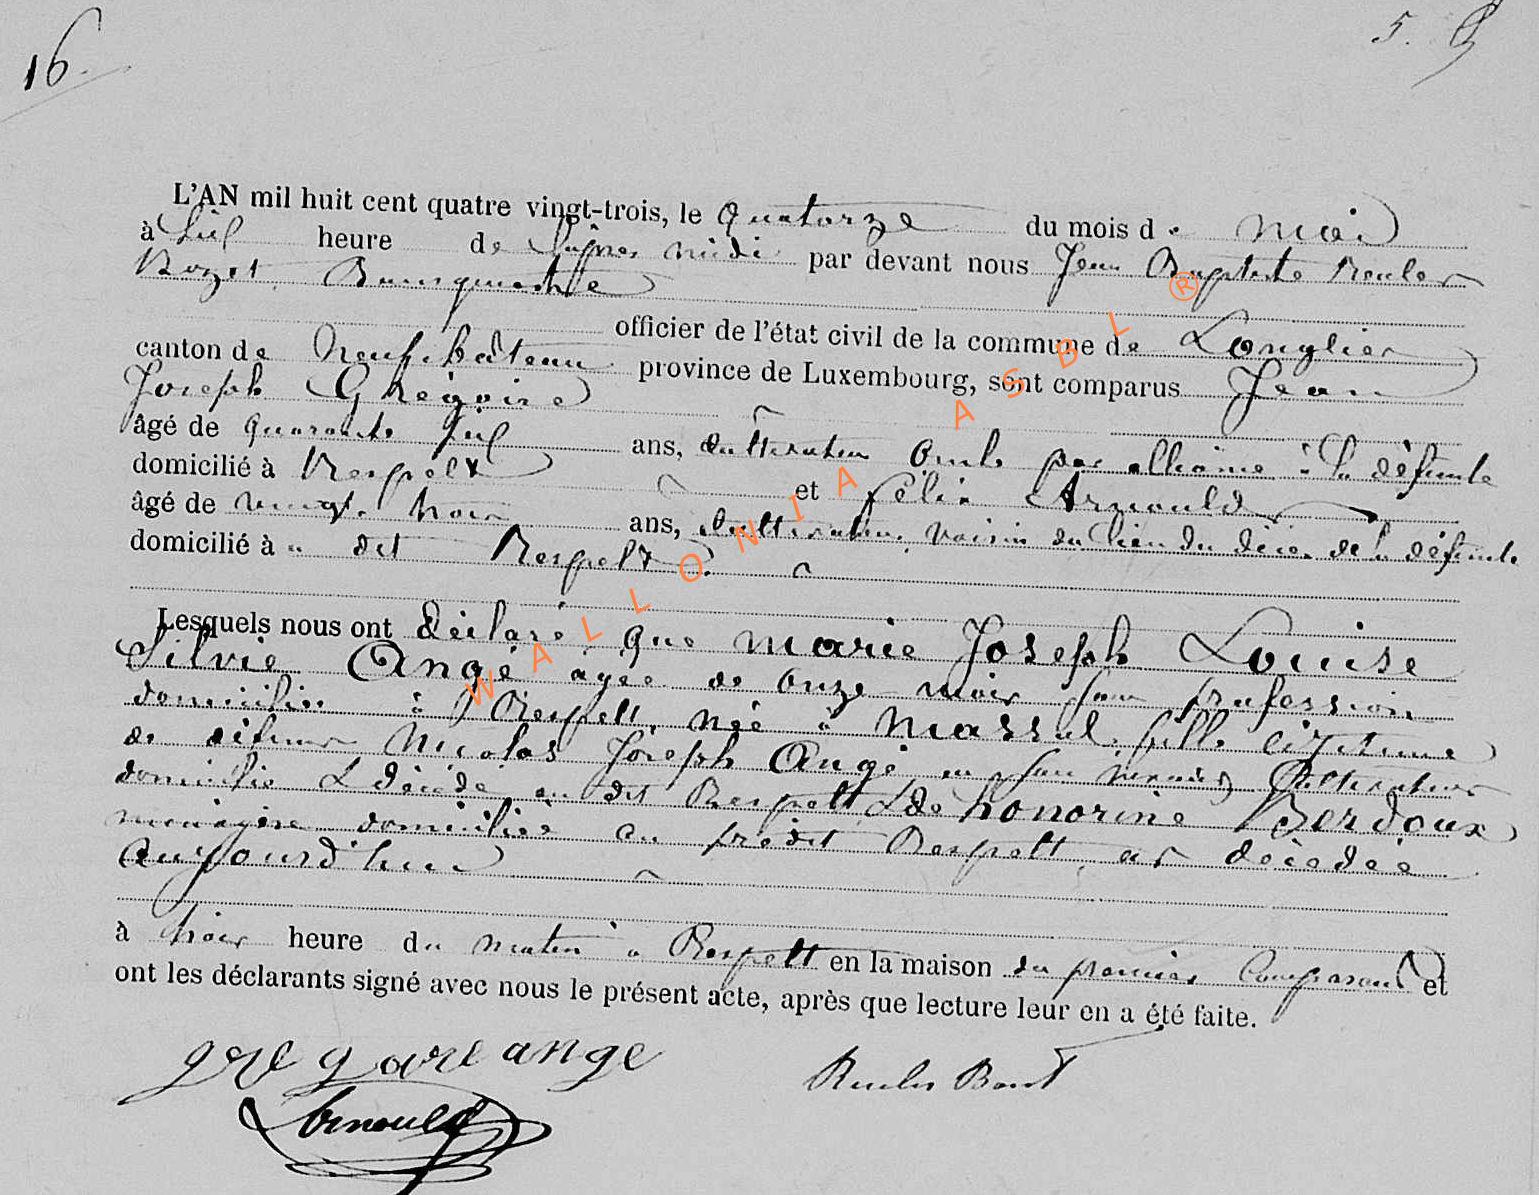 16.
5.
L'AN mil huit cent quatre vingt-trois, le quatorze du mois de mai
à six heure de l'après midi par devant nous Jean Baptiste Reuler
Bourgmestre
officier de l'état civil de la commune de Longlier
canton de Neufchâteau province de Luxembourg, sont comparus Jean
Joseph Grégoire
âgé de quarante six ans, cultivateur oncle par alliance à la défunte
domicilié à Respelt et Félix Arnould
âgé de vingt trois ans, cultivateur, voisin du lieu du décès de la défunte
domicilié à dit Respelt.
Lesquels nous ont déclaré que marie Joseph Louise
Silvie Angé âgée de onze mois sans profession
domiciliée à Respelt, née à Massul, fille légitime
de défunt Nicolas Joseph Angé, en son vivant cultivateur
domicilié & décédé au dit Respelt & de honorine Berdoux
ménagère domiciliée au prédit Respelt, est décédée
aujourd'hui
à trois heure du matin à Respelt en la maison du premier comparant et
ont les déclarants signé avec nous le présent acte, après que lecture leur en a été faite.
gregoire ange
Arnould
WALLONIA ASBL ®